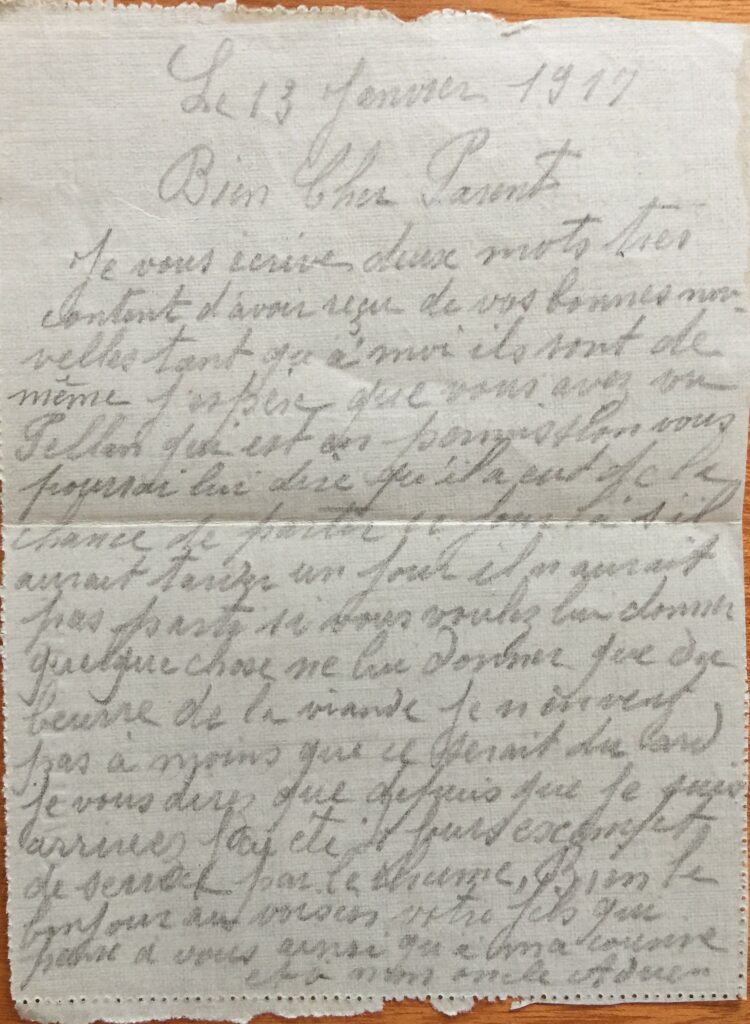 Le 13 Janvier 1917
Bien Cher Parent
Je vous écrive deux mots tres
content d'avoir reçu de vos bonnes nou-
velles tant qu'à moi ils sont de
même J'espère que vous avez vu
qui est en permission vous
pourrai lui dire qu'il a eut de la
chance de partir ce jour là s'il
aurait tarder un jour il n'aurait
pas parti si vous voulez lui donner
quelque chose ne lui donner que du
beurre de la viande je n'en veut
pas à moins que ce serait du lard
Je vous direz que depuis que je suis
arrivez J'ai été jours exempt
de service par le rhume, Bien le
bonjour au voisin votre fils qui
pense à vous ainsi qu'a ma
et a mon oncle